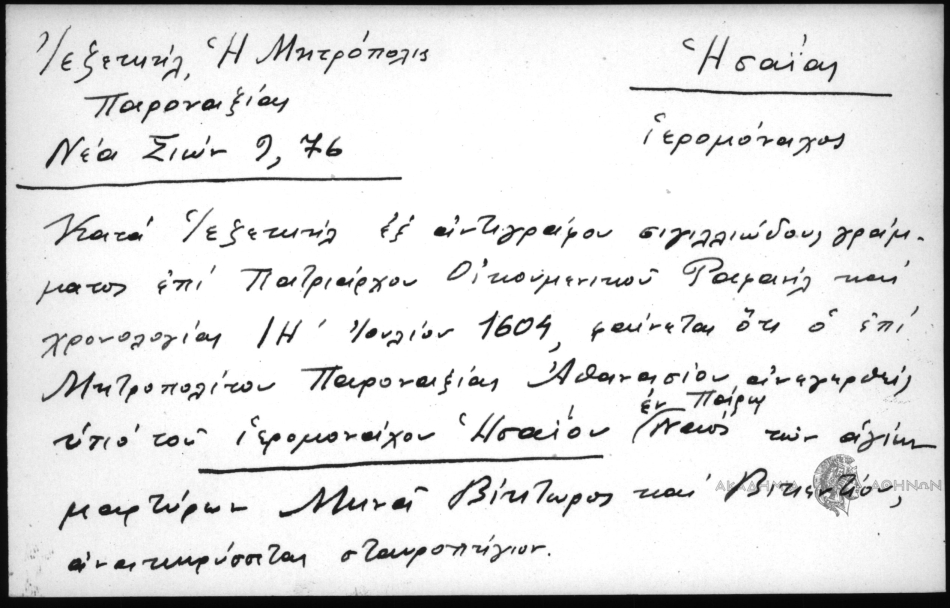 Ἰεζεκιήλ, Ἡ Μητρόπολις
Παροναξίας
Νέα Σιών 9, 76
Ἡσαΐας
ἱερομόναχος
Κατά Ἰεζεκιήλ ἐξ ἀντιγράφου σιγιλλιώδους γράμ-
ματος ἐπί Πατριάρχου Οἰκουμενικοῦ Ραφαήλ καί
χρονολογίας ΙΗ΄ Ἰουλίου 1604, φαίνεται ὅτι ὁ ἐπί
Μητροπολίτου Παροναξίας Ἀθανασίου ἀνεγερθείς
ἐν Πάρῳ
ὑπό τοῦ ἱερομονάχου Ἡσαΐου Ναός τῶν ἁγίων
μαρτύρων Μηνᾶ Βίκτωρος καί Βικεντίου,
ἀνακηρύσσεται σταυροπήγιον.
ΑΚΑΔΗΜΙΑ ΑΘΗΝΩΝ